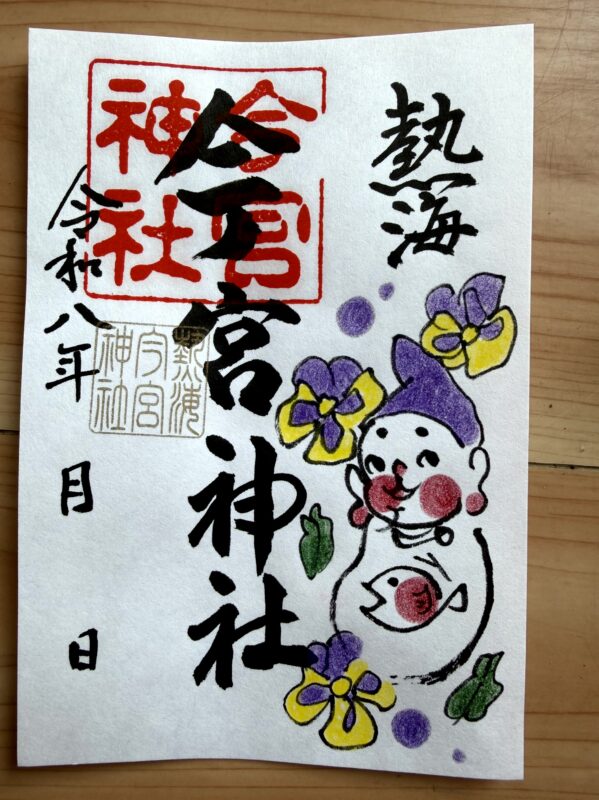 熱海
今宮神社
今宮
神社
熱海
今宮
神社
令和八年 月 日